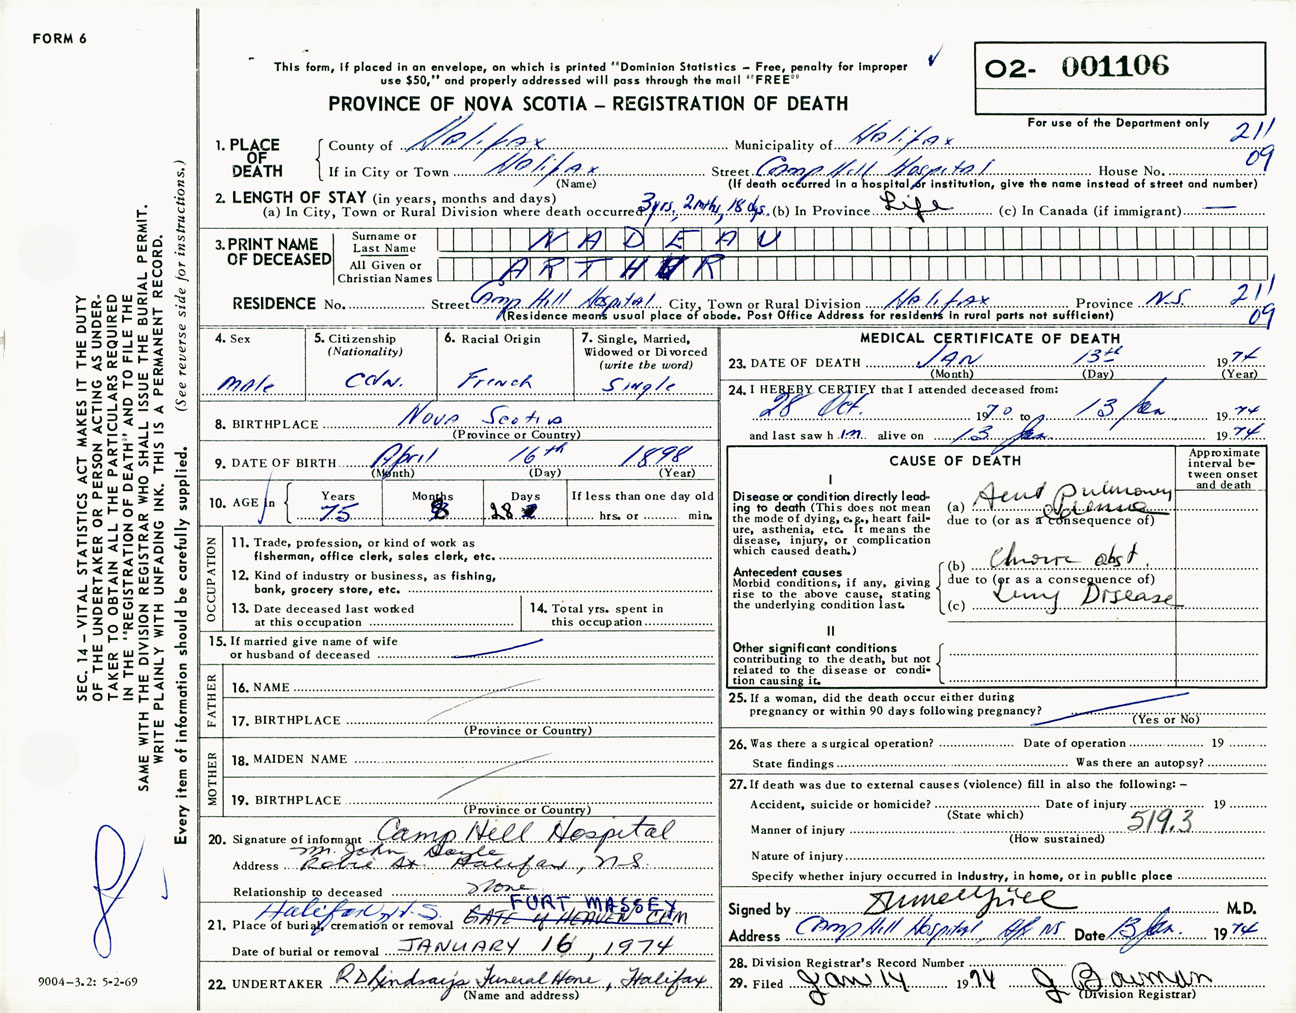 FORM 6
This form, if placed in an envelope, on which is printed "Dominion Statistics – Free, penalty for improper
use $50," and properly addressed will pass through the mail "FREE"
PROVINCE OF NOVA SCOTIA – REGISTRATION OF DEATH
O2- 001106
For use of the Department only
211
09
1. PLACE OF DEATH
County of Halifax Municipality of Halifax
If in City or Town Halifax Street Camp Hill Hospital House No.
(Name) (If death occurred in a hospital or institution, give the name instead of street and number)
2. LENGTH OF STAY (in years, months and days)
(a) In City, Town or Rural Division where death occurred 3 yrs, 2 mths, 18 dys. (b) In Province Life (c) In Canada (if immigrant) —
3. PRINT NAME OF DECEASED
Surname or Last Name NADEAU
All Given or Christian Names ARTHUR
RESIDENCE No. Street Camp Hill Hospital City, Town or Rural Division Halifax Province N.S.
(Residence means usual place of abode. Post Office Address for residents in rural parts not sufficient)
211
09
4. Sex
male
5. Citizenship
(Nationality)
CDN.
6. Racial Origin
French
7. Single, Married,
Widowed or Divorced
(write the word)
Single
8. BIRTHPLACE Nova Scotia
(Province or Country)
9. DATE OF BIRTH April 16th 1898
(Month) (Day) (Year)
10. AGE in
Years Months Days If less than one day old
75 8 28 hrs. or min.
OCCUPATION
11. Trade, profession, or kind of work as
fisherman, office clerk, sales clerk, etc.
12. Kind of industry or business, as fishing,
bank, grocery store, etc.
13. Date deceased last worked
at this occupation
14. Total yrs. spent in
this occupation
15. If married give name of wife
or husband of deceased
FATHER
16. NAME
17. BIRTHPLACE
(Province or Country)
MOTHER
18. MAIDEN NAME
19. BIRTHPLACE
(Province or Country)
20. Signature of informant Camp Hill Hospital
Mr. John Doyle
Address Robie St. Halifax, N.S.
Relationship to deceased none
Halifax N.S. FORT MASSEY
21. Place of burial, cremation or removal GATE of HEAVEN CEM
Date of burial or removal JANUARY 16, 1974
22. UNDERTAKER R D Lindsay's Funeral Home, Halifax
(Name and address)
MEDICAL CERTIFICATE OF DEATH
23. DATE OF DEATH JAN 13th 1974
(Month) (Day) (Year)
24. I HEREBY CERTIFY that I attended deceased from:
28 Oct. 1970 to 13 Jan 1974
and last saw h im alive on 13 Jan 1974
CAUSE OF DEATH
Approximate
interval be-
tween onset
and death
I
Disease or condition directly lead-
ing to death (This does not mean
the mode of dying, e.g., heart fail-
ure, asthenia, etc. It means the
disease, injury, or complication
which caused death.)
(a) Acute pulmonary
edema
due to (or as a consequence of)
Antecedent causes
Morbid conditions, if any, giving
rise to the above cause, stating
the underlying condition last.
(b) Chronic obst.
due to (or as a consequence of)
(c) Lung Disease
II
Other significant conditions
contributing to the death, but not
related to the disease or condi-
tion causing it.
25. If a woman, did the death occur either during
pregnancy or within 90 days following pregnancy?
(Yes or No)
26. Was there a surgical operation? Date of operation 19
State findings Was there an autopsy?
27. If death was due to external causes (violence) fill in also the following: –
Accident, suicide or homicide? Date of injury 19
(State which)
Manner of injury 519.3
(How sustained)
Nature of injury
Specify whether injury occurred in Industry, in home, or in public place
Signed by M.D.
Address Camp Hill Hospital, Hfx NS. Date 13 Jan. 1974
28. Division Registrar's Record Number
29. Filed Jan 14 1974 J Bowman
(Division Registrar)
SEC. 14 – VITAL STATISTICS ACT MAKES IT THE DUTY
OF THE UNDERTAKER OR PERSON ACTING AS UNDER-
TAKER TO OBTAIN ALL THE PARTICULARS REQUIRED
IN THE "REGISTRATION OF DEATH" AND TO FILE THE
SAME WITH THE DIVISION REGISTRAR WHO SHALL ISSUE THE BURIAL PERMIT.
WRITE PLAINLY WITH UNFADING INK. THIS IS A PERMANENT RECORD.
Every item of information should be carefully supplied. (See reverse side for instructions.)
9004-3.2: 5-2-69